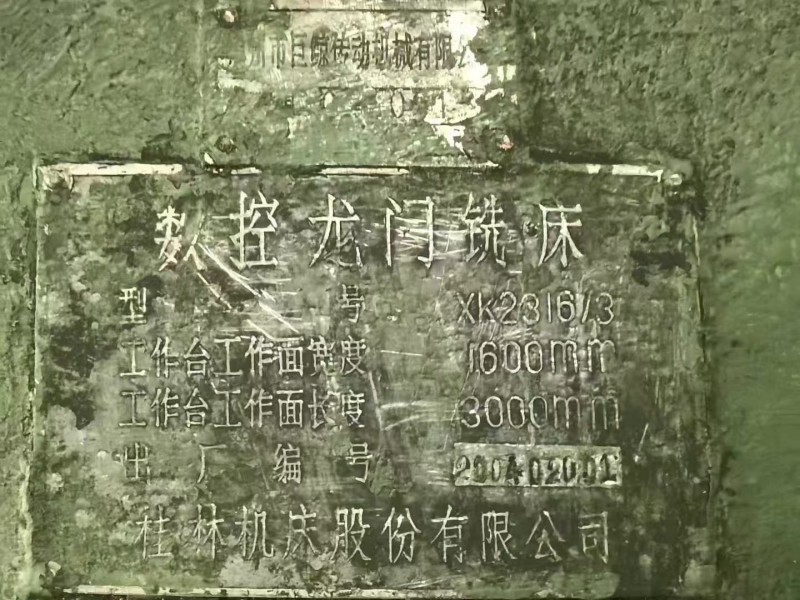 州市巨鲸传动机械有限
数控龙门铣床
型 号 XK2316/3
工作台工作面宽度 1600mm
工作台工作面长度 3000mm
出厂编号 200402001
桂林机床股份有限公司